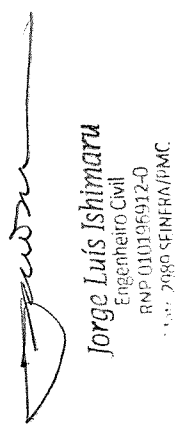 Jorge Luís Ishimaru
Engenheiro Civil
RNP 010196912-0
2989 SEINFRA/PMC